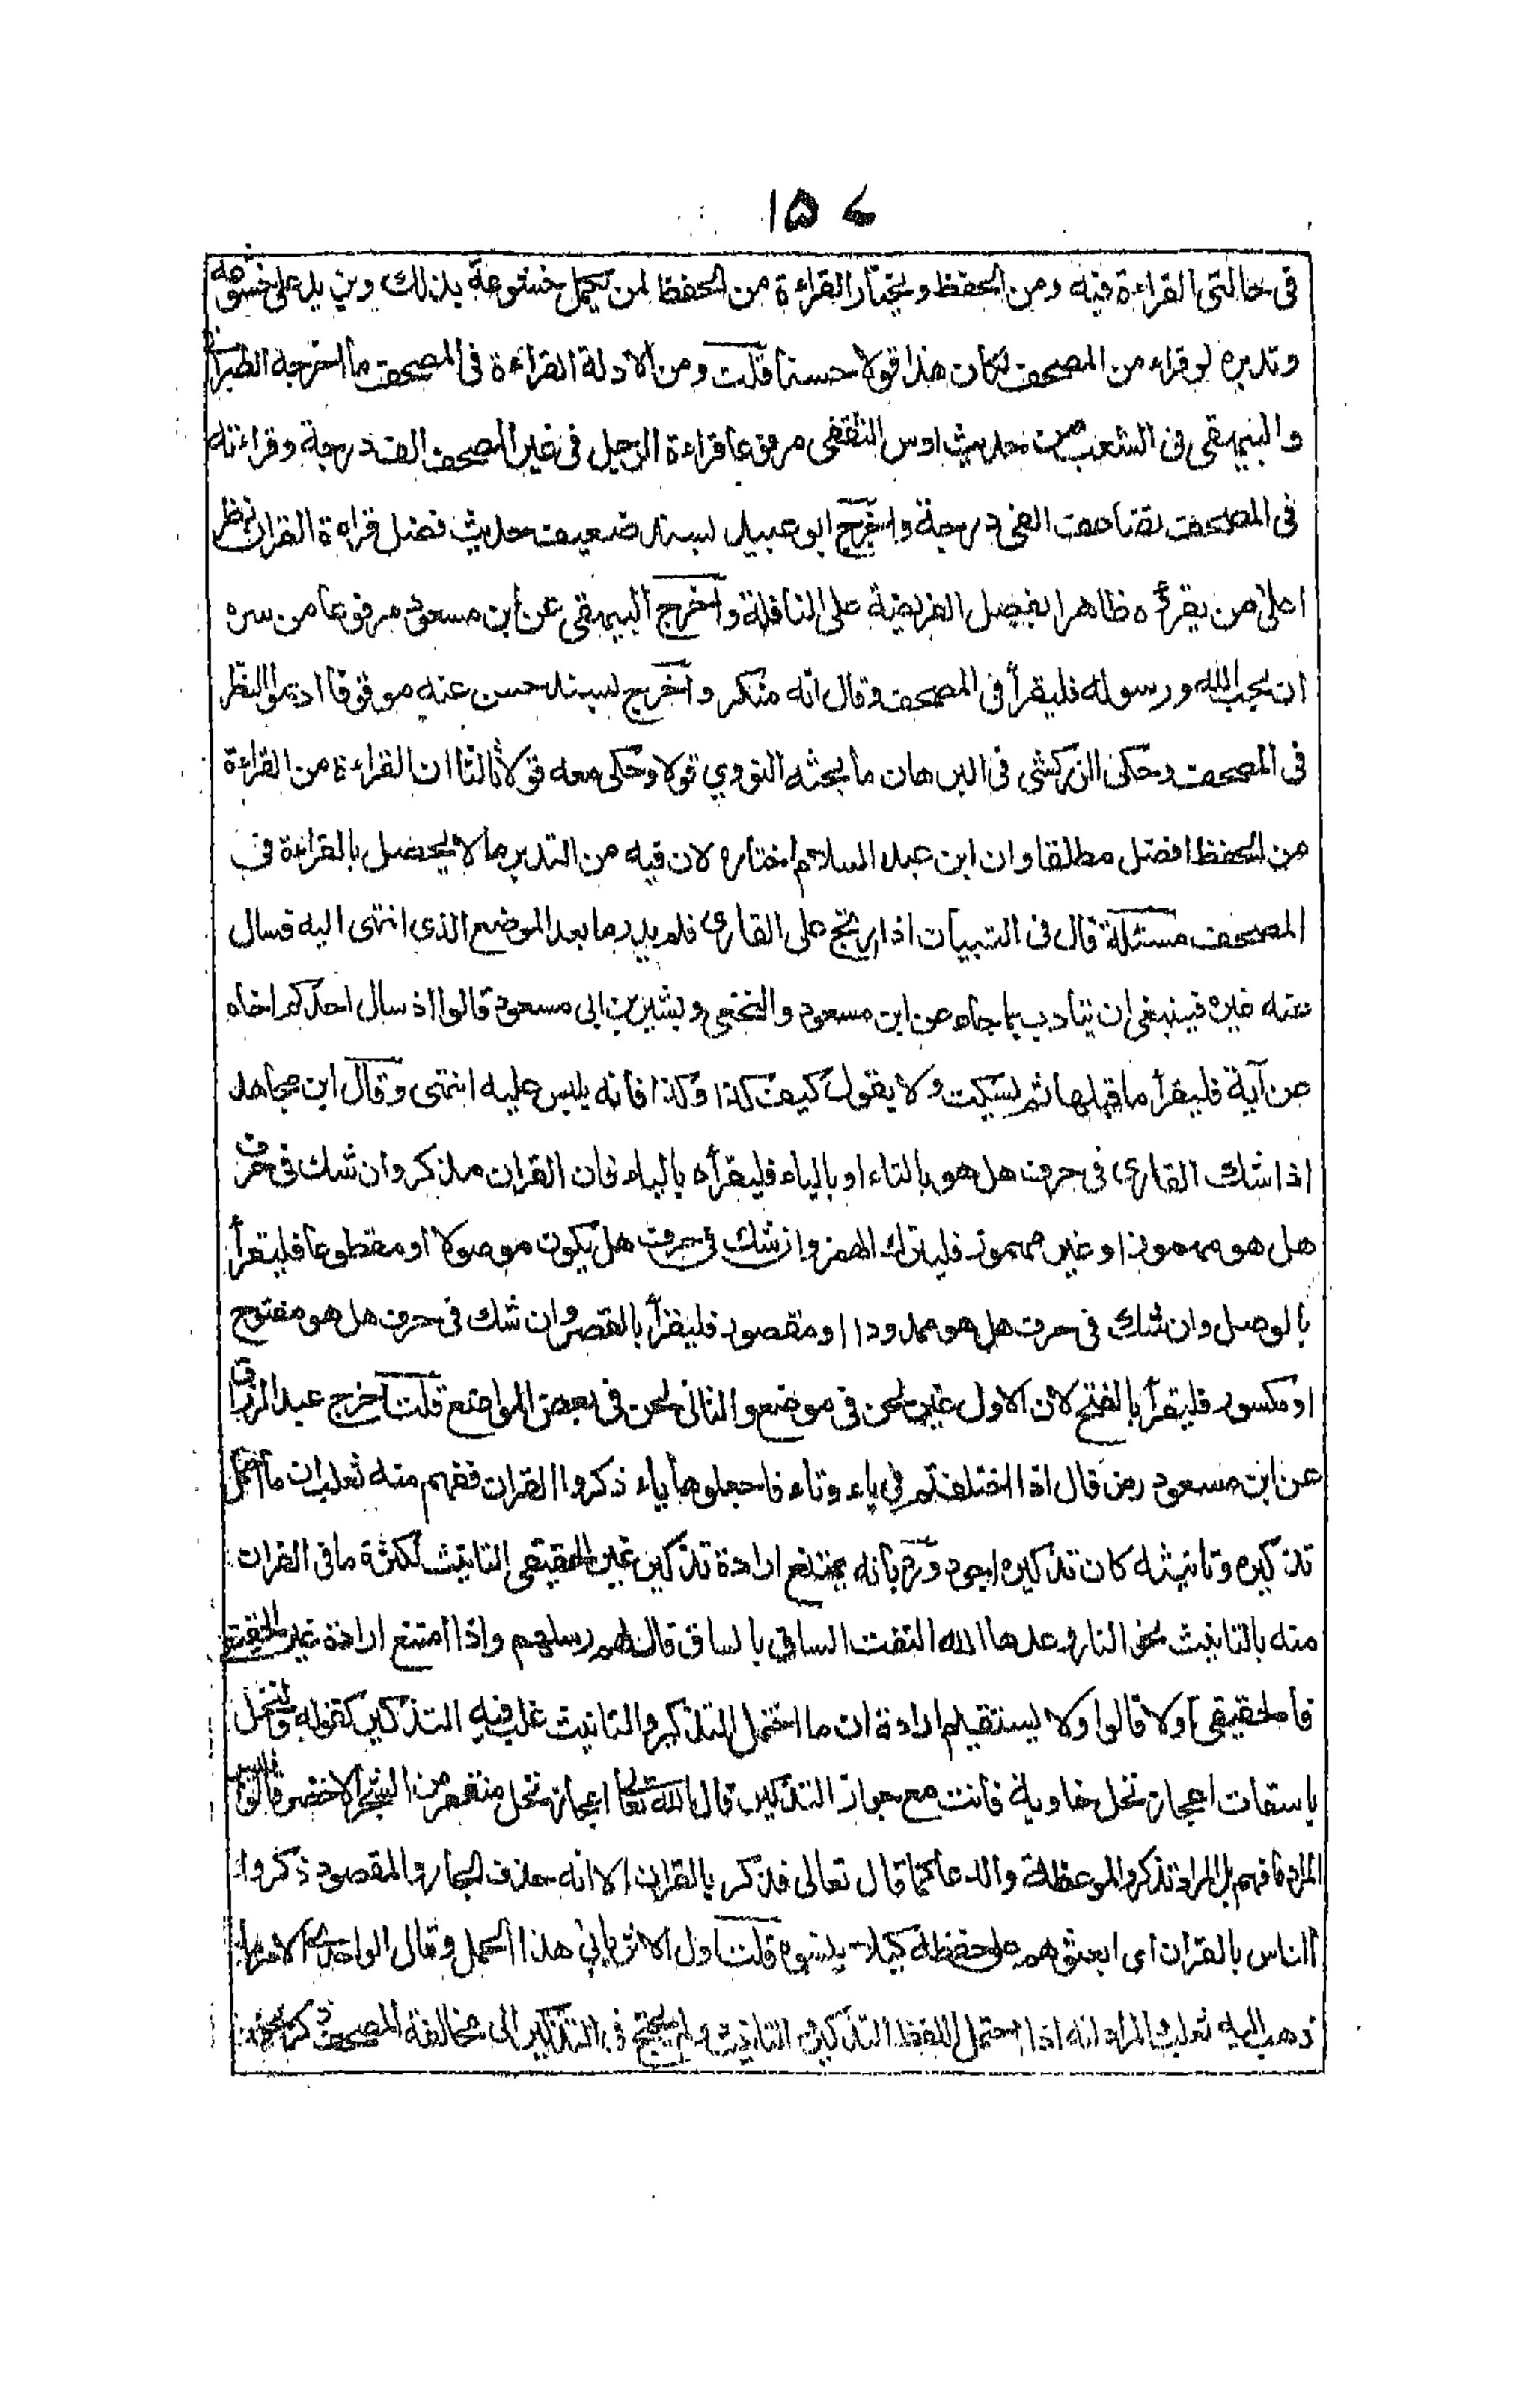 ١٥٧
فى حالتى القراءة فيه ومن الحفظ ويختار القراءة من الحفظ لمن تكمل خشوعه بذلك ويزيد على خشوعه
وتدبره لو قراه من المصحف لكان هذا قولا حسنا قلت ومن الادلة القراءة فى المصحف ما اخرجه الطبرانى
والبيهقى فى الشعب من حديث اوس الثقفى مرفوعا قراءة الرجل فى غير المصحف الف درجة وقراءته
فى المصحف تضاعف الفى درجة واخرج ابو عبيد بسند ضعيف حديث فضل قراءة القران نظر
اعلى من يقرأه ظاهرا بفضل الفريضة على النافلة واخرج البيهقى عن ابن مسعود مرفوعا من سره
ان يحب الله ورسوله فليقرأ فى المصحف وقال انه منكر واخرج بسند حسن عنه موقوفا اديموا النظر
فى المصحف وحكى الزركشى فى البرهان ما بحثه النووي قولا وحكى معه قولا ثالثا ان القراءة من القراءة
من الحفظ افضل مطلقا وان ابن عبد السلام اختاره لان فيه من التدبر ما لا يحصل بالقراءة فى
المصحف مسئلة قال فى التبيان اذا ارتج على القارى فلم يدر ما بعد الموضع الذى انتهى اليه فسال
عنه غيره فينبغى ان يتادب بما جاء عن ابن مسعود والنخعى وبشير بن ابى مسعود قالوا اذ سال احدكم اخاه
عن آية فليقرأ ما قبلها ثم ليسكت ولا يقول كيف كذا وكذا فانه يلبس عليه انتهى وقال ابن مجاهد
اذا شك القارى فى حرف هل هو بالتاء او بالياء فليقرأه بالياء فان القران مذكر وان شك فى حرف
هل هو مهموز او غير مهموز فليترك الهمز وان شك فى حرف هل يكون موصولا او مقطوعا فليقرأ
بالوصل وان شك فى حرف هل هو ممدودا او مقصور فليقرأ بالقصر وان شك فى حرف هل هو مفتوح
او مكسور فليقرأ بالفتح لان الاول غير لحن فى موضع والثانى لحن فى بعض المواضع قلت اخرج عبد الرزاق
عن ابن مسعود رض قال اذا اختلفتم فى ياء وتاء فاجعلوها ياء ذكروا القران ففهم منه ثعلب ان ما احتمل
تذكيره وتانيثه كان تذكيره اجود ورد بانه يمتنع ارادة تذكير غير الحقيقى التانيث لكثرة ما فى القران
منه بالتانيث نحو النار وعدها الله التفت الساق بالساق قالت لهم رسلهم واذا امتنع ارادة غير الحقيقى
فالحقيقى اولا قالوا ولا يستقيم ارادة ان ما احتمل التذكير والتانيث غلب فيه التذكير كقوله والنخل
باسقات اعجاز نخل خاوية فانت مع جواز التذكير قال الله تعالى اعجاز نخل منقعر من الشجر الاخضر قال فليس
المراد ما فهم بل المراد تذكروا الموعظة والدعا كما قال تعالى فذكر بالقران الا انه حذف الجار والمقصود ذكروا
الناس بالقران اى ابعثوهم على حفظه كيلا ينسوه قلت اول الاثر يابى هذا الحمل وقال الواحدى الامر ما
ذهب اليه ثعلب والمراد انه اذا احتمل اللفظ التذكير والتانيث ولم يحتج فى التذكير الى مخالفة المصحف ذكر نحو